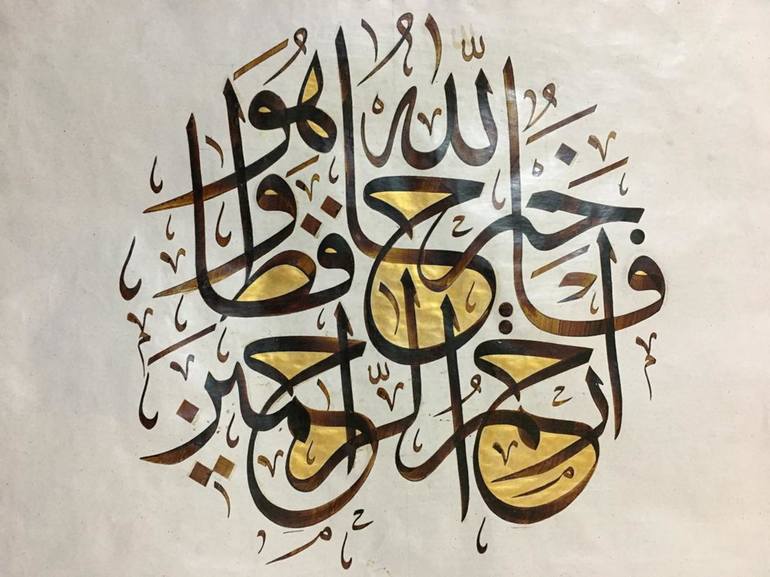 فَاللّٰهُ خَيْرٌ حَافِظًا وَهُوَ
اَرْحَمُ الرَّاحِمِينَ